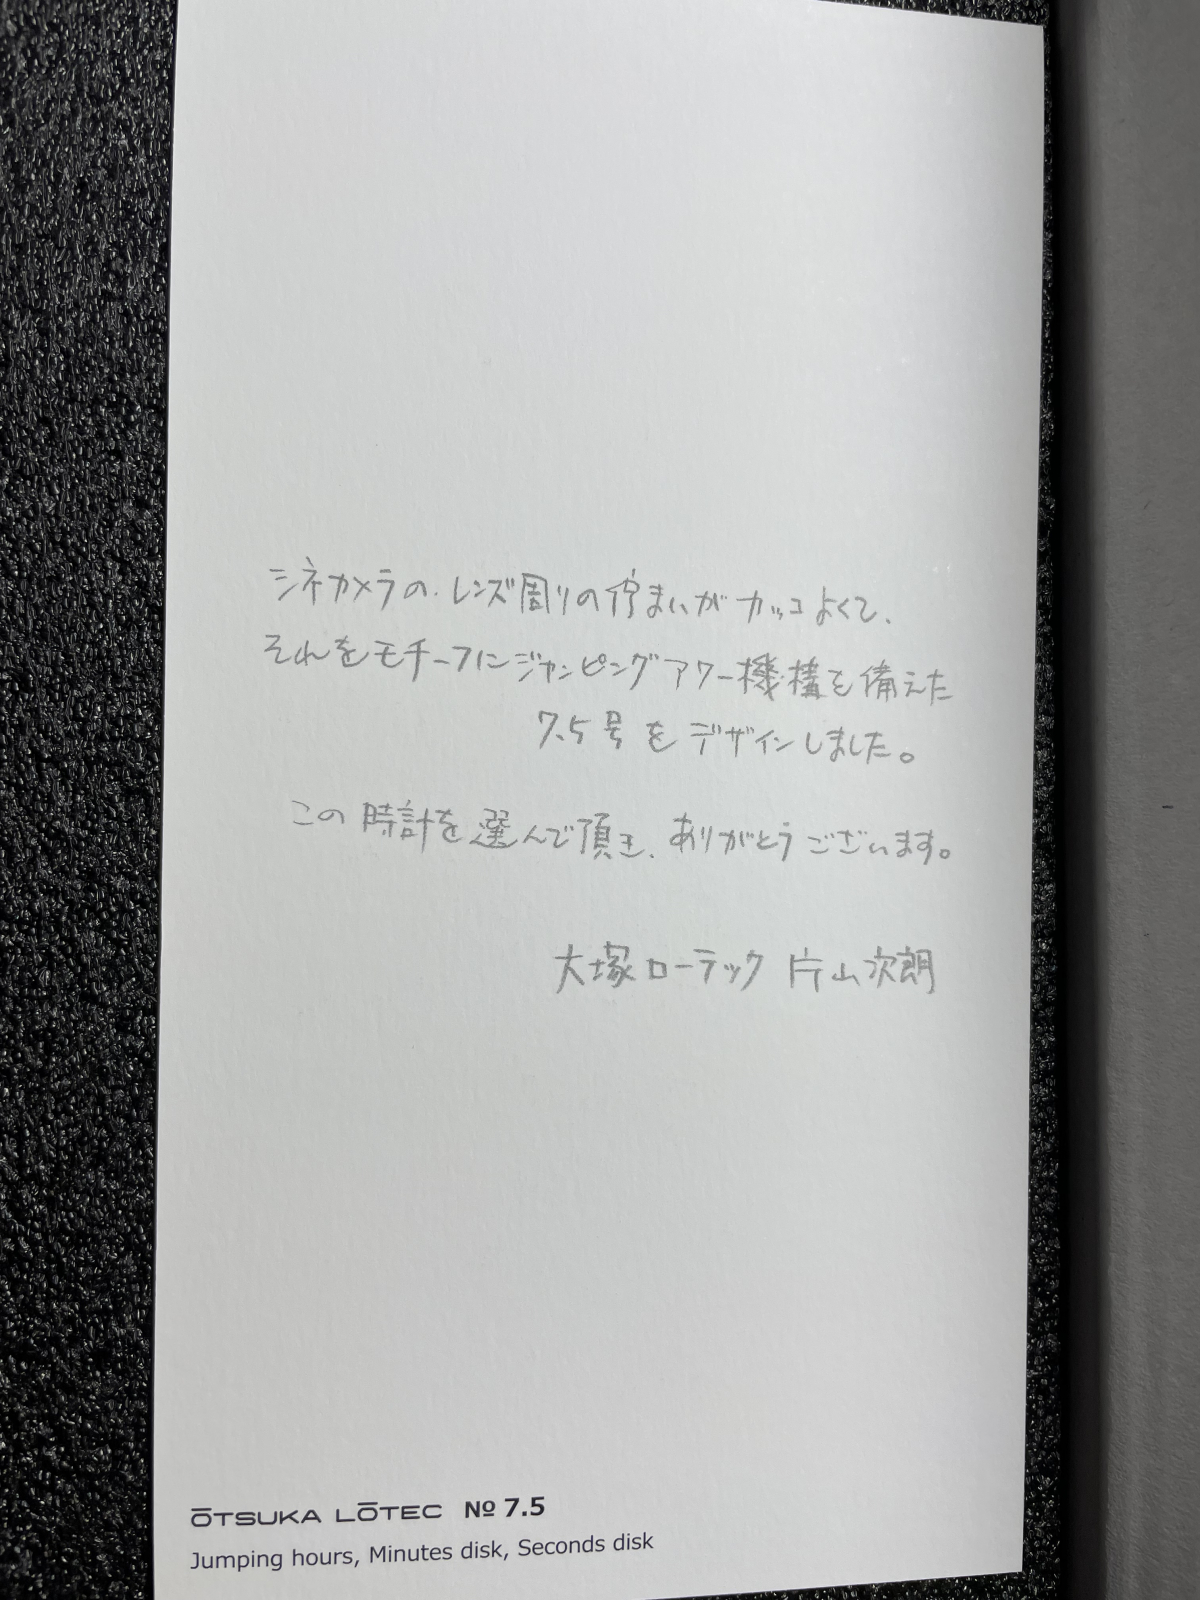 シネカメラの、レンズ周りの佇まいがカッコよくて、
それをモチーフにジャンピングアワー機構を備えた
7.5号をデザインしました。
この時計を選んで頂き、ありがとうございます。
大塚ローテック 片山次朗
ŌTSUKA LŌTEC № 7.5
Jumping hours, Minutes disk, Seconds disk